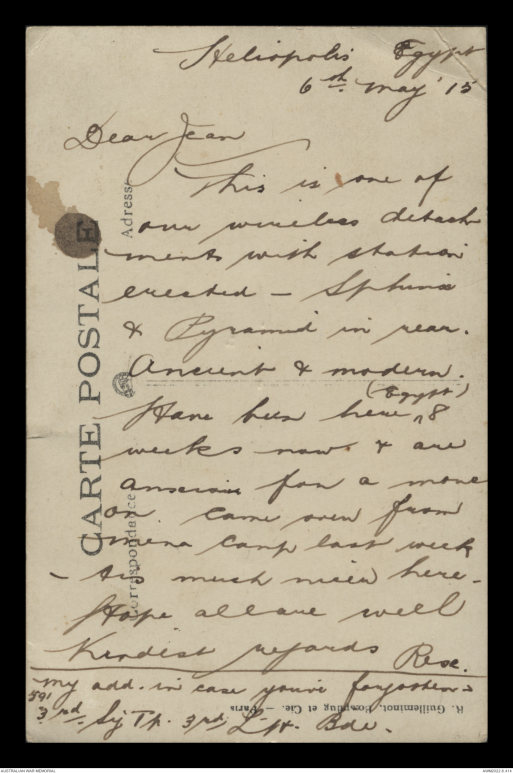 Heliopolis Egypt
6th May '15
Dear Jean
This is one of
our wireless detach
ments with station
erected - Sphinx
& Pyramid in rear.
Ancient & modern.
(Egypt)
Have been here ^ 8
weeks now & are
anxious for a move
on came over from
mena camp last week
- tis much nicer here -
Hope all are well
Kindest regards
my add. in case you've forgotten -
591
3rd Sig Tp. 3rd L. H. Bde.
CARTE POSTALE
Adresse
Correspondance
R. Guilleminot, et Cie. - Paris
AUSTRALIAN WAR MEMORIAL